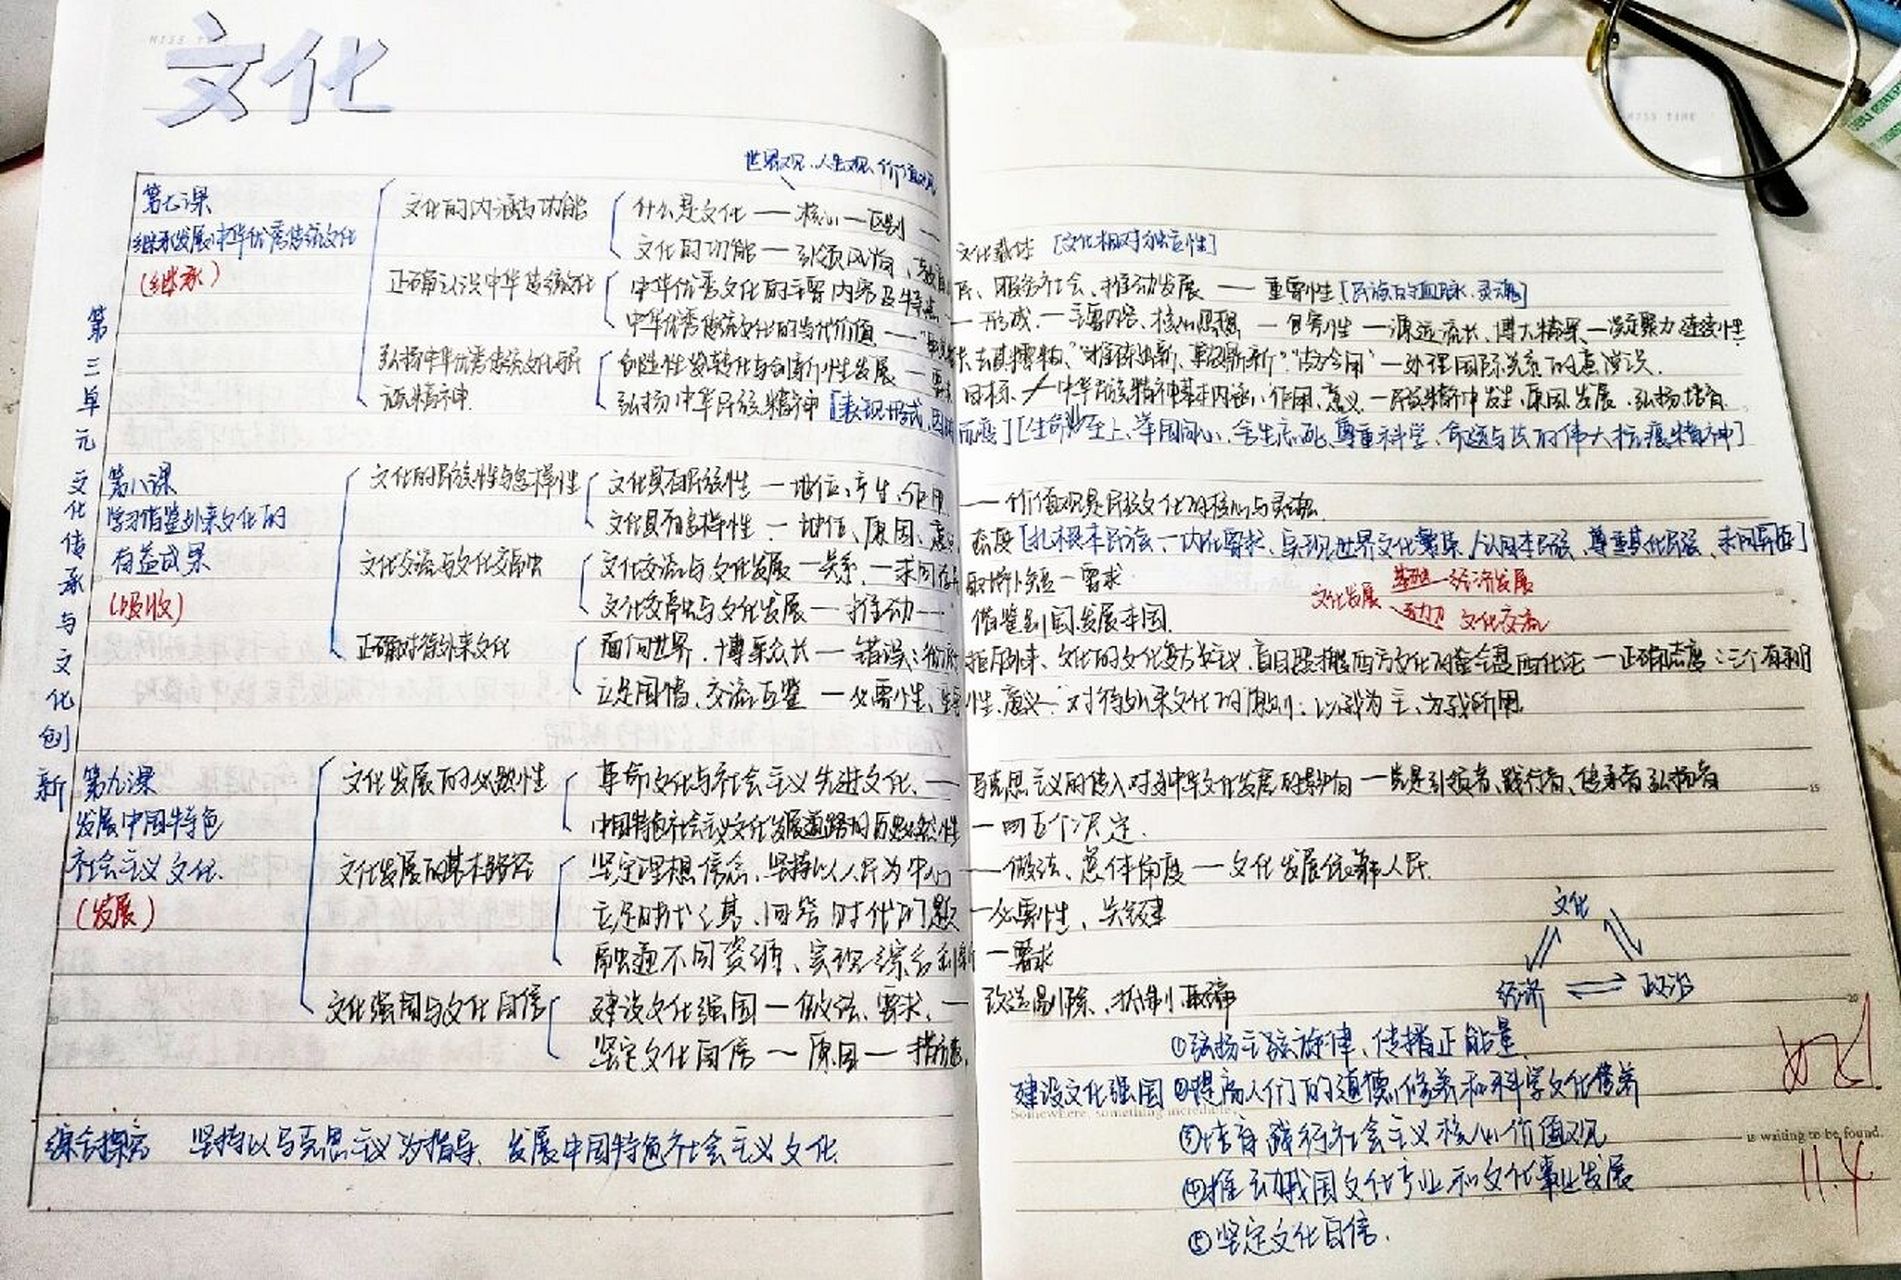 文化
世界观、人生观、价值观
第三单元 文化传承与文化创新
第七课
继承发展中华优秀传统文化
(继承)
文化的内涵与功能
什么是文化 — 核心 — 区别 — 文化载体 [文化相对独立性]
文化的功能 — 引领风尚、教育人民、服务社会、推动发展 — 重要性 [民族的血脉、灵魂]
正确认识中华传统文化
中华优秀文化的主要内容及特点 — 形成 — 主要内容、核心思想 — 包容性 — 源远流长、博大精深 — 凝聚力 连续性
中华优秀传统文化的当代价值 — 去其糟粕、"推陈出新、革故鼎新" "古为今用" — 处理国际关系的意识
弘扬中华优秀传统文化与民
族精神
创造性转化与创新性发展 — 要 目标
中华民族精神基本内涵、作用、意义 — 民族精神 发生、原因、发展、弘扬培育
弘扬中华民族精神 [表现形式、因 而变] [生命至上、举国同心、舍生忘死、尊重科学、命运与共的伟大抗疫精神]
第八课
学习借鉴外来文化的
有益成果
(吸收)
文化的民族性与多样性
文化具有民族性 — 地位、产生、作用 — 价值观是民族文化的核心与灵魂
文化具有多样性 — 地位、原因、意义 态度 [扎根本民族、— 内在要求、实现世界文化繁荣、认同本民族、尊重其他民族、求同存异]
文化交流与文化交融
文化交流与文化发展 — 关系 — 求同存异 取长补短 — 要求
文化交融与文化发展 — 推动 — 借鉴别国发展本国.
文化发展
基础 — 经济发展
动力 文化交流
正确对待外来文化
面向世界、博采众长 — 错误: 拒斥外来文化的文化复古主义、盲目照搬西方文化的全盘西化论 — 正确态度: 三个有利
立足国情、交流互鉴 — 必要性、重要性、意义 — 对待外来文化的原则: 以我为主、为我所用
第九课
发展中国特色
社会主义文化.
(发展)
文化发展的必然性
革命文化与社会主义先进文化 — 马克思主义的传入对中华文化发展的影响 — 党是引领者、践行者、传承者 弘扬者
中国特色社会主义文化发展道路的历史必然性 — 四五个决定.
文化发展的基本路径
坚定理想信念、坚持以人民为中心 — 做法、总体角度 — 文化发展依靠人民.
立足时代之基、回答时代问题 — 必要性、关键
融通不同资源、实现综合创新 — 要求
文化强国与文化自信
建设文化强国 — 做法、要求、— 改造 剔除、抵制 取缔
坚定文化自信 — 原因 — 措施
文化
经济 政治
建设文化强国
①弘扬主旋律、传播正能量
②提高人们的道德修养和科学文化修养
Somewhere, something incredible
③培育践行社会主义核心价值观
is waiting to be found.
④推动我国文化产业和文化事业发展
⑤坚定文化自信.
综合探究 坚持以马克思主义为指导、发展中国特色社会主义文化
11.4